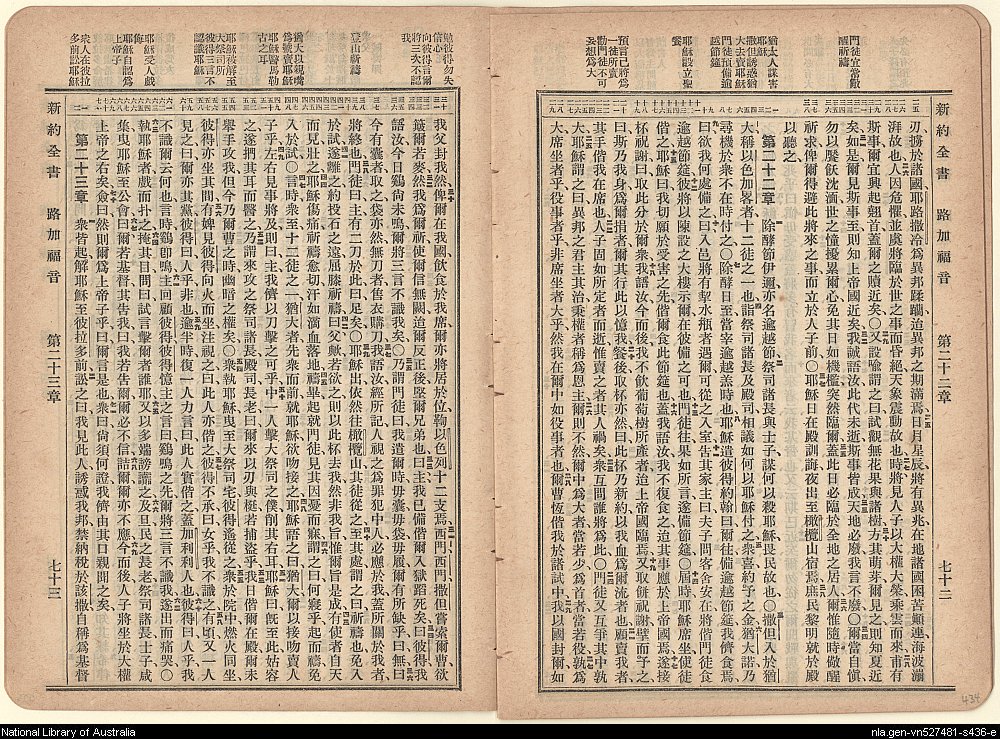 門徒宜常儆
醒祈禱
猶太人謀害
耶穌
撒但誘惑猶
大去賣耶穌
門徒預備逾
越節筵
耶穌設立聖
餐
預言已將爲
一徒所賣
勸門徒不可
妄想爲大
新約全書 路加福音 第二十二章 七十二
刃擄於諸國耶路撒冷爲異邦蹂躪迨異邦之期滿焉日月星辰將有異兆在地諸國困苦顚連海波瀰
湃故也人因危懼並虞將臨於世之事而昏絕天象震動故也時將見人子以大權大榮乘雲而來甫有
斯事爾宜興起翹首蓋爾之贖近矣〇又設喻謂之曰試觀無花果與諸樹方其萌芽爾見之則知夏近
矣如是爾見斯事至則知上帝國近矣我誠語汝此代未逝斯事皆成天地必廢我言不廢〇爾當自愼
勿以饜飫沈湎世之憧擾累爾心免其日如機檻突然臨爾蓋此日必臨於全地之居人爾惟隨時儆醒
祈求俾爾得避此將來之事而立於人子前〇耶穌日在殿訓誨夜出至橄欖山宿焉庶民黎明就於殿
以聽之
第二十二章 除酵節伊邇亦名逾越節祭司諸長與士子謀何以殺耶穌畏民故也〇撒但入於猶
大稱以色加畧者十二徒之一也詣祭司諸長及殿司相議如何以耶穌付之衆喜約予之金猶大諾乃
尋機於衆不在時付之〇除酵日至當宰逾越羔時也耶穌遣彼得約翰曰往備逾越節筵我儕食焉
曰欲我何處備之曰入邑將有挈水瓶者遇爾可從之入室吿其家主曰夫子問客舍安在將偕門徒食
逾越節筵彼將以陳設之大樓示爾在彼備之可也門徒往果如所言遂備節筵〇屆時耶穌席坐使徒
偕之耶穌曰我切願於受害之先偕爾食此節筵也我語汝我不復食之迨其事應於上帝國焉遂接
杯祝謝曰取此分於爾衆我語汝今而後我不飲葡萄樹所產者迨上帝國臨焉又取餅祝謝擘而予之
曰斯乃我身爲爾捐者爾其行此以憶我餐後取杯亦然曰此杯乃新約以我血爲爾流者也顧賣我者
其手偕我在席也人子固如所定者而逝惟賣之者其人禍矣衆互問誰將爲此〇門徒又互爭其中孰
爲大耶穌謂之曰異邦之君主其治秉權者稱爲恩主爾則不然爾中爲大者當若少爲首者當若役孰爲
大席坐者乎役事者乎非席坐者乎然我在爾中如役事者也爾曹恆偕我於我諸試中我以國封爾如
勉彼得勿失
信心
向彼得言爾
將三次不認
我
登山祈禱
猶大以親嘴
爲號賣耶穌
耶穌醫馬勒
古之耳
耶穌被解至
大祭司所
彼得三言不
認識耶穌
耶穌受人戲
侮
耶穌自認爲
上帝子
衆人在彼拉
多前訟耶穌
我父封我然俾爾在我國飲食於我席爾亦將居於位鞫以色列十二支焉西門西門撒但嘗索爾曹欲
簸爾若麥然我爲爾祈使爾信無闕迨爾反正後堅爾兄弟也曰主我已備偕爾入獄蹈死矣曰彼得我
語汝今日鷄尙未鳴爾將三言不識我矣〇乃謂門徒曰我遣爾時毋囊毋袋毋履爾有所缺乎曰無曰
今有囊者取之袋亦然無刀者售衣購刀我語汝經所記人視之爲罪犯中人必應於我蓋所關於我者
將終也門徒曰主有二刀於此曰足矣〇耶穌出依然往橄欖山其徒從之至其處謂之曰祈禱免入
於試遂離之約投石之遠屈膝祈禱曰父歟若欲之則以此杯去我然非我旨惟爾旨是成有使者自天
而見壯之耶穌傷痛祈禱愈切汗如滴血落地禱畢起就門徒見其因憂而寐謂之曰何寢乎起而禱免
入於試〇言時衆至十二徒之一猶大者先衆而前就耶穌欲吻接之耶穌語之曰猶大爾以接吻賣人
子乎左右見事將及則曰主我儕以刀擊之可乎中一人擊大祭司之僕削其右耳耶穌曰旣至此姑容
之遂捫其耳而醫之乃謂來攻之祭司諸長殿司長老曰爾來以刃與梃若捕盜乎我日偕爾在殿爾未
舉手攻我但今乃爾曹之時幽暗之權矣〇衆執耶穌曳至大祭司宅彼得遙從之衆於院中燃火同坐
彼得亦坐其間有婢見彼得向火而坐注視之曰此人亦偕之彼得不承曰女乎我不識之有頃又一人
見之曰爾亦其黨彼得曰人乎非也逾半時復一人力言曰此人實偕之蓋加利利人也彼得曰人乎我
不識爾云何也言時鷄卽鳴主回顧彼得彼得憶主之言曰鷄鳴之先爾將三言不識我遂出而痛哭〇
執耶穌者戲而扑之掩其目問曰試言擊爾者誰耶又以多端謗讟之及旦民之長老祭司諸長士子咸
集曳耶穌至公會曰爾若基督其吿我曰我若吿爾爾必不信詰爾爾亦不應今而後人子將坐於大權
上帝之右矣僉曰然則爾爲上帝子乎曰爾言是也衆曰尙須何證我儕由其口親聞之矣
第二十三章 衆皆起解耶穌至彼拉多前訟之曰我見此人誘惑我邦禁納稅於該撒自稱爲基督
新約全書 路加福音 第二十三章 七十三
434
National Library of Australia
nla.gen-vn527481-s436-e